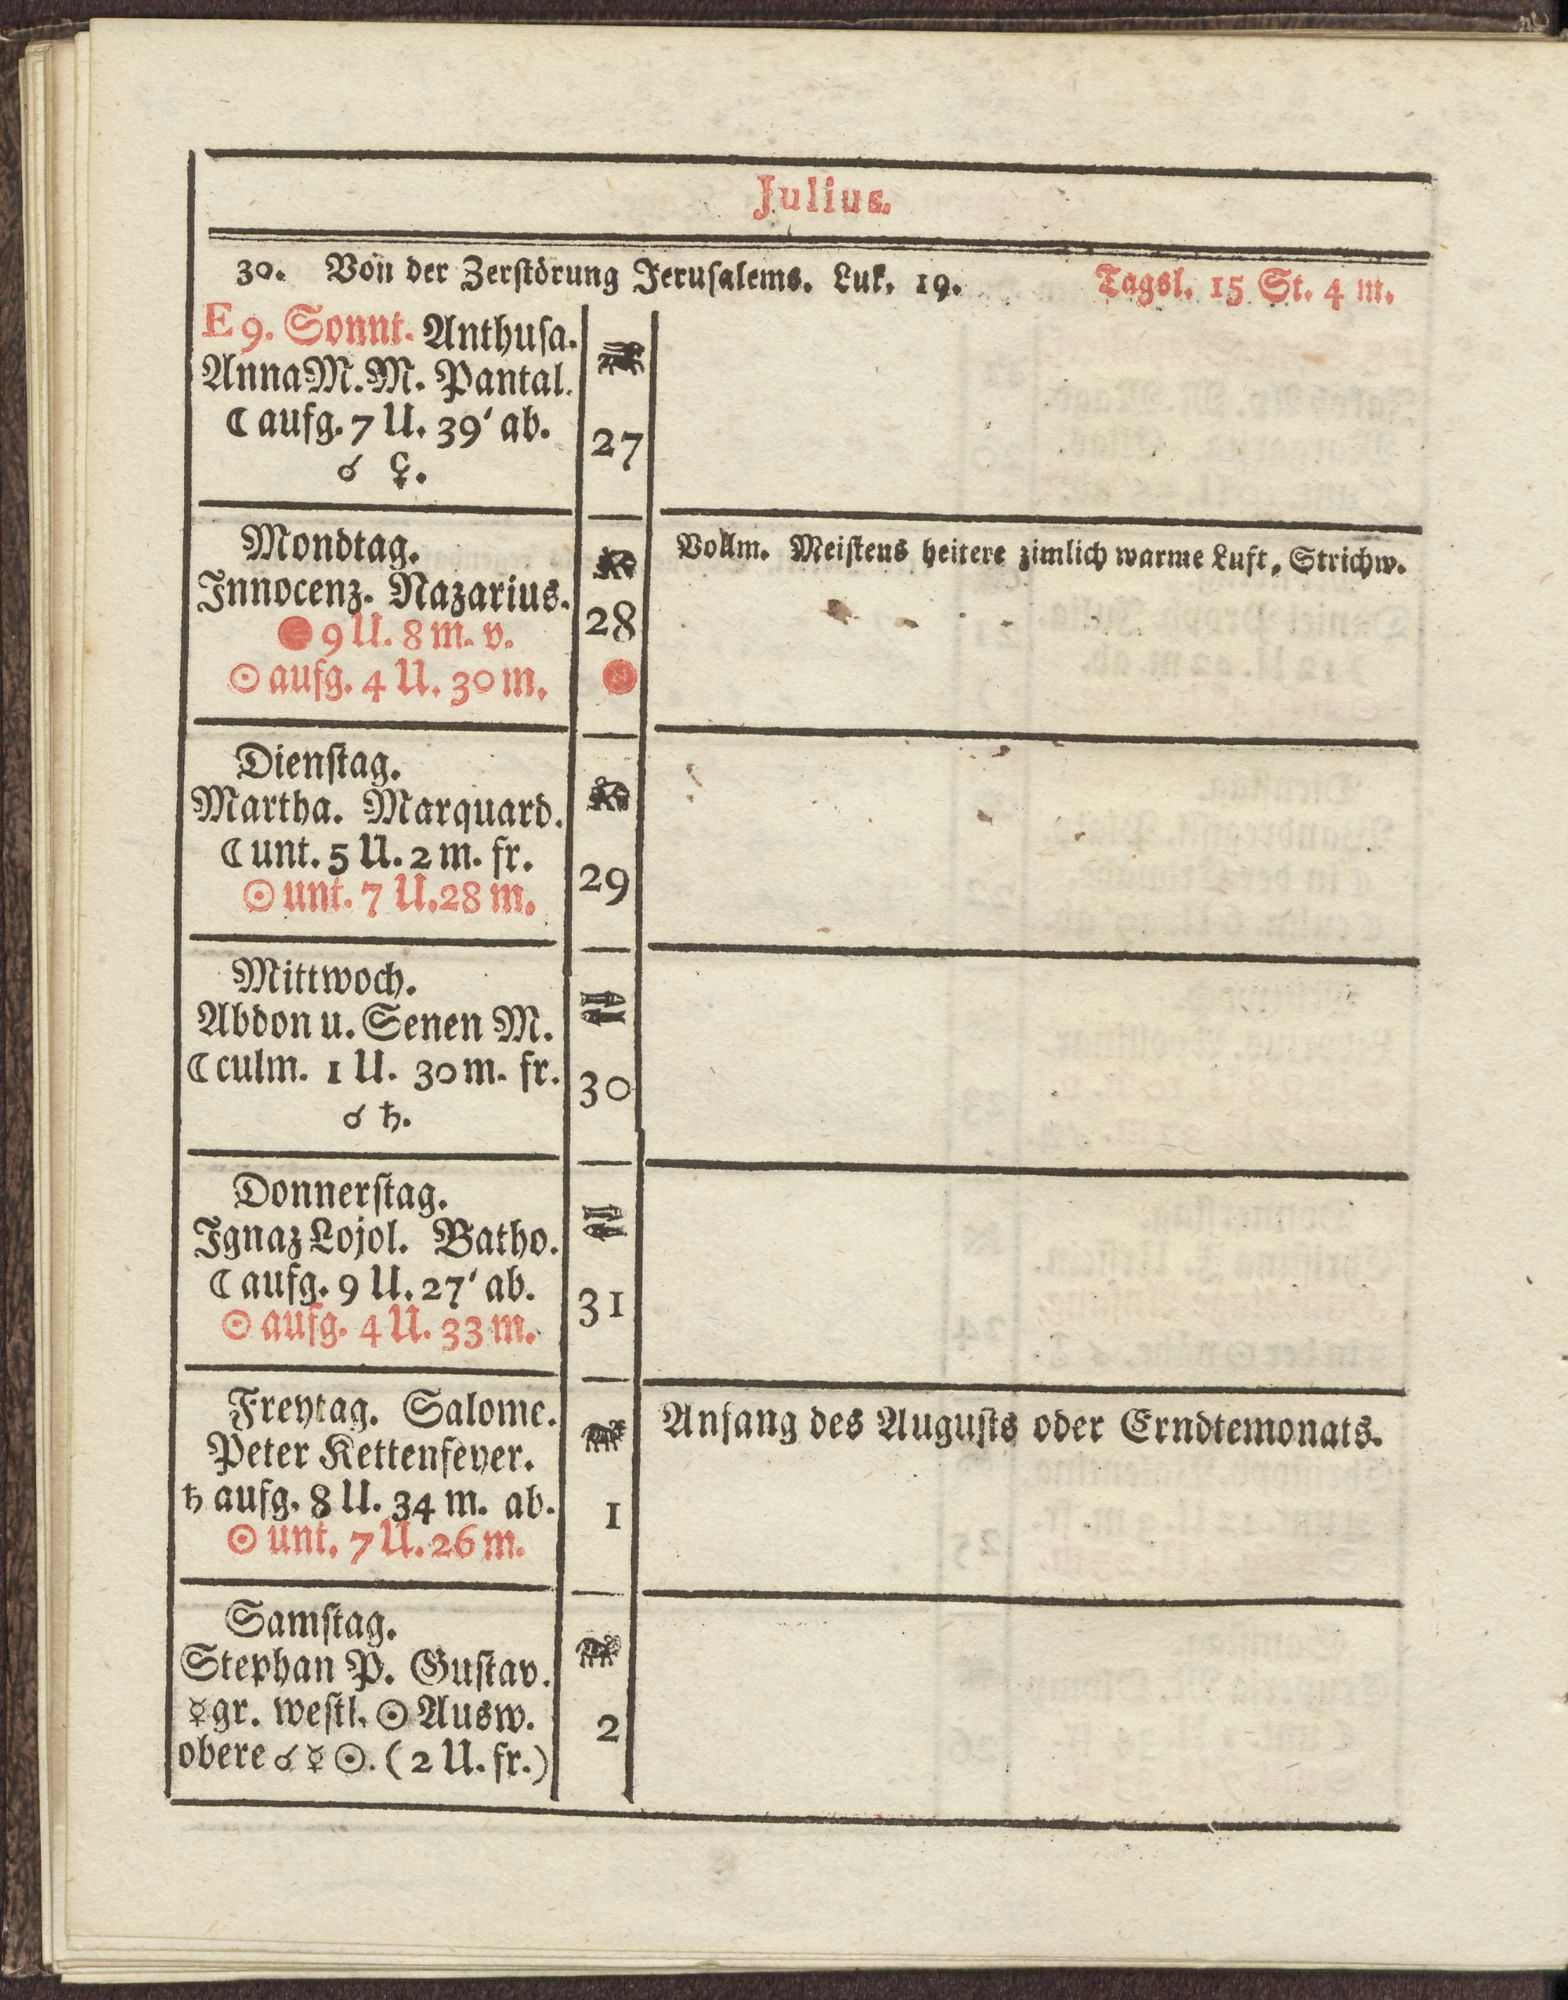 Julius.
30. Von der Zerstörung Jerusalems. Luk. 19. Tagsl. 15 St. 4 m.
E 9. Sonnt. Anthusa.
Anna M. M. Pantal.
☾ aufg. 7 U. 39' ab.
☌ ♀.
27
Mondtag.
Innocenz. Nazarius.
9 U. 8 m. v.
☉ aufg. 4 U. 30 m.
28
Vollm. Meistens heitere zimlich warme Luft, Strichw.
Dienstag.
Martha. Marquard.
☾ unt. 5 U. 2 m. fr.
☉ unt. 7 U. 28 m.
29
Mittwoch.
Abdon u. Senen M.
☾ culm. 1 U. 30 m. fr.
☌ ♄.
30
Donnerstag.
Ignaz Lojol. Batho.
☾ aufg. 9 U. 27' ab.
☉ aufg. 4 U. 33 m.
31
Freytag. Salome.
Peter Kettenfeyer.
♄ aufg. 8 U. 34 m. ab.
☉ unt. 7 U. 26 m.
1
Anfang des Augusts oder Erndtemonats.
Samstag.
Stephan P. Gustav.
☿ gr. westl. ☉ Ausw.
obere ☌ ☿ ☉. (2 U. fr.)
2